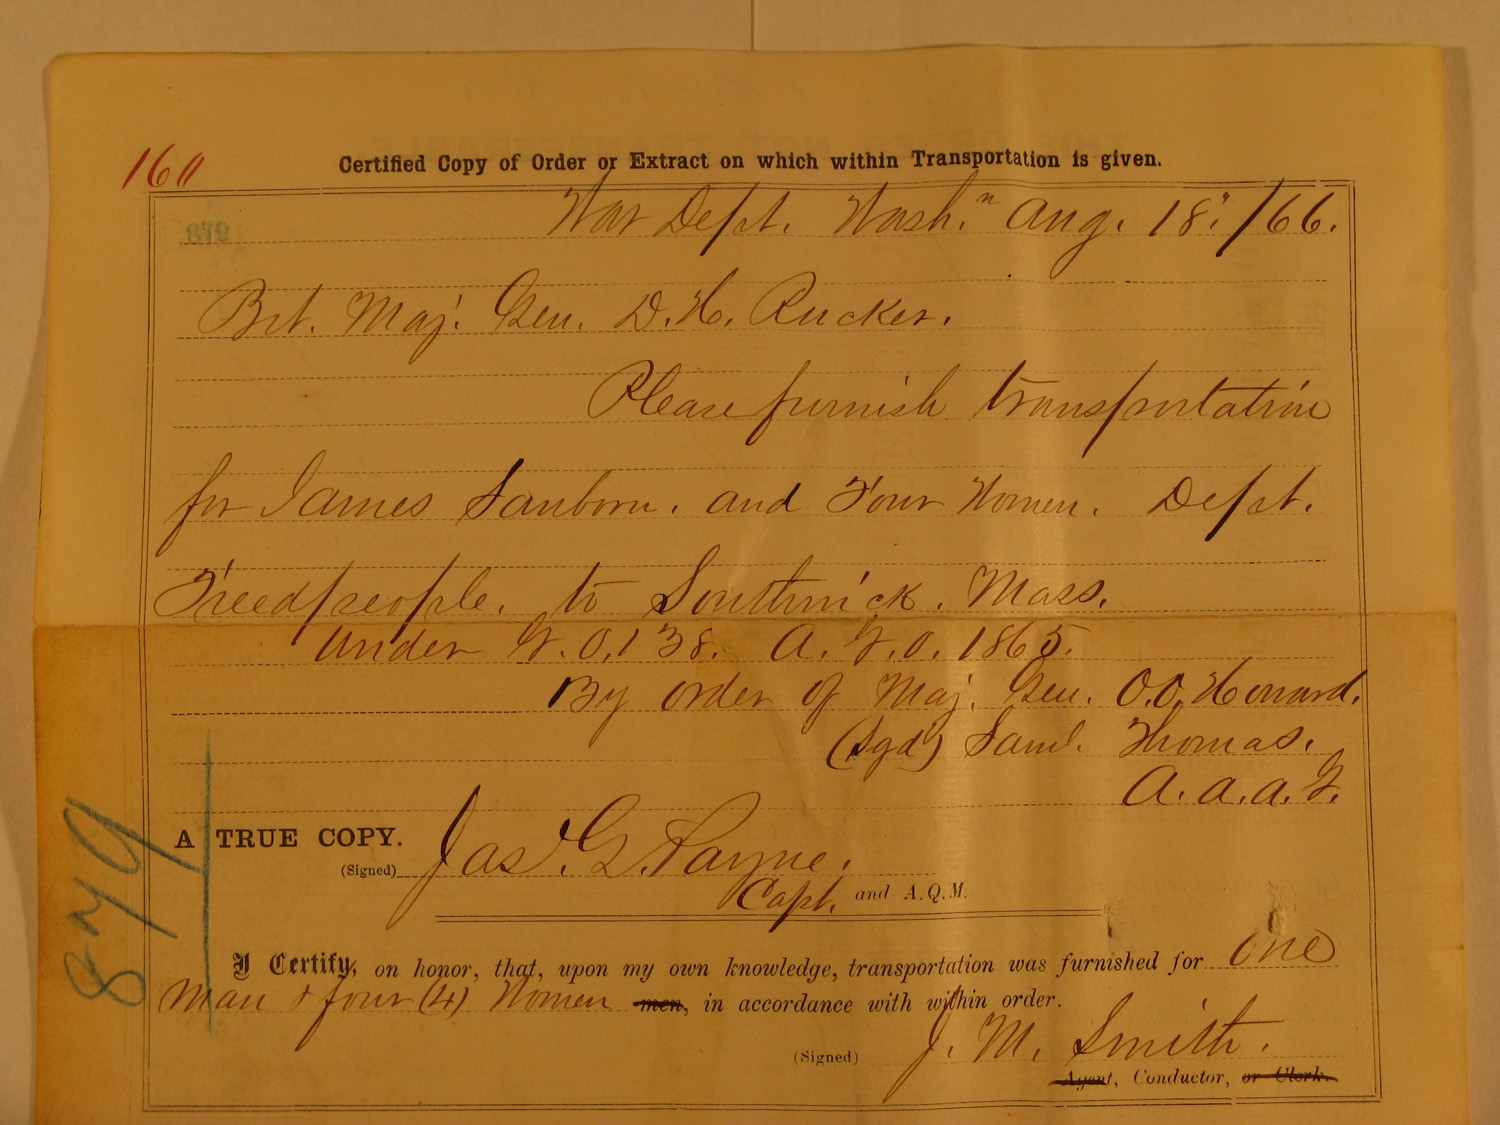 160
Certified Copy of Order or Extract on which within Transportation is given.
War Dept. Wash.n Aug. 18."/66.
879
Bvt. Maj. Gen. D. H. Rucker.
Please furnish transportation
for James Sanborn. and Four Women. Dept.
Freedpeople. to Southwick. Mass.
Under G. O. 138. A. G. O. 1865.
By order of Maj. Gen. O. O. Howard.
(Sgd) Saml. Thomas.
A. a. a. G.
A TRUE COPY.
(Signed) Jas. G. Payne.
Capt. and A. Q. M.
879
I Certify, on honor, that, upon my own knowledge, transportation was furnished for One
man & four (4) Women men, in accordance with within order.
(Signed) J. M. Smith.
Agent, Conductor, or Clerk.